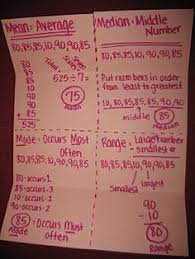 Mean = Average
80,85,85,10,90,90,85
80
85
85
10
90
90
+ 85
525
525 ÷ 7 =
75
Mean
Median = Middle
Number
80,85,85,10,90,90,85
Put numbers in order
from least to greatest
10,80,85,85,85,90,90
middle 85
Median
Mode = Occurs Most
Often
80,85,85,10,90,90,85
80-occurs 1
85-occurs-3
10-occurs-1
90-occurs-2
85 = Occurs Most
Mode Often
Range = Large number
- smallest
10,80,85,85,85,90,90
smallest largest
90
- 10
80
Range